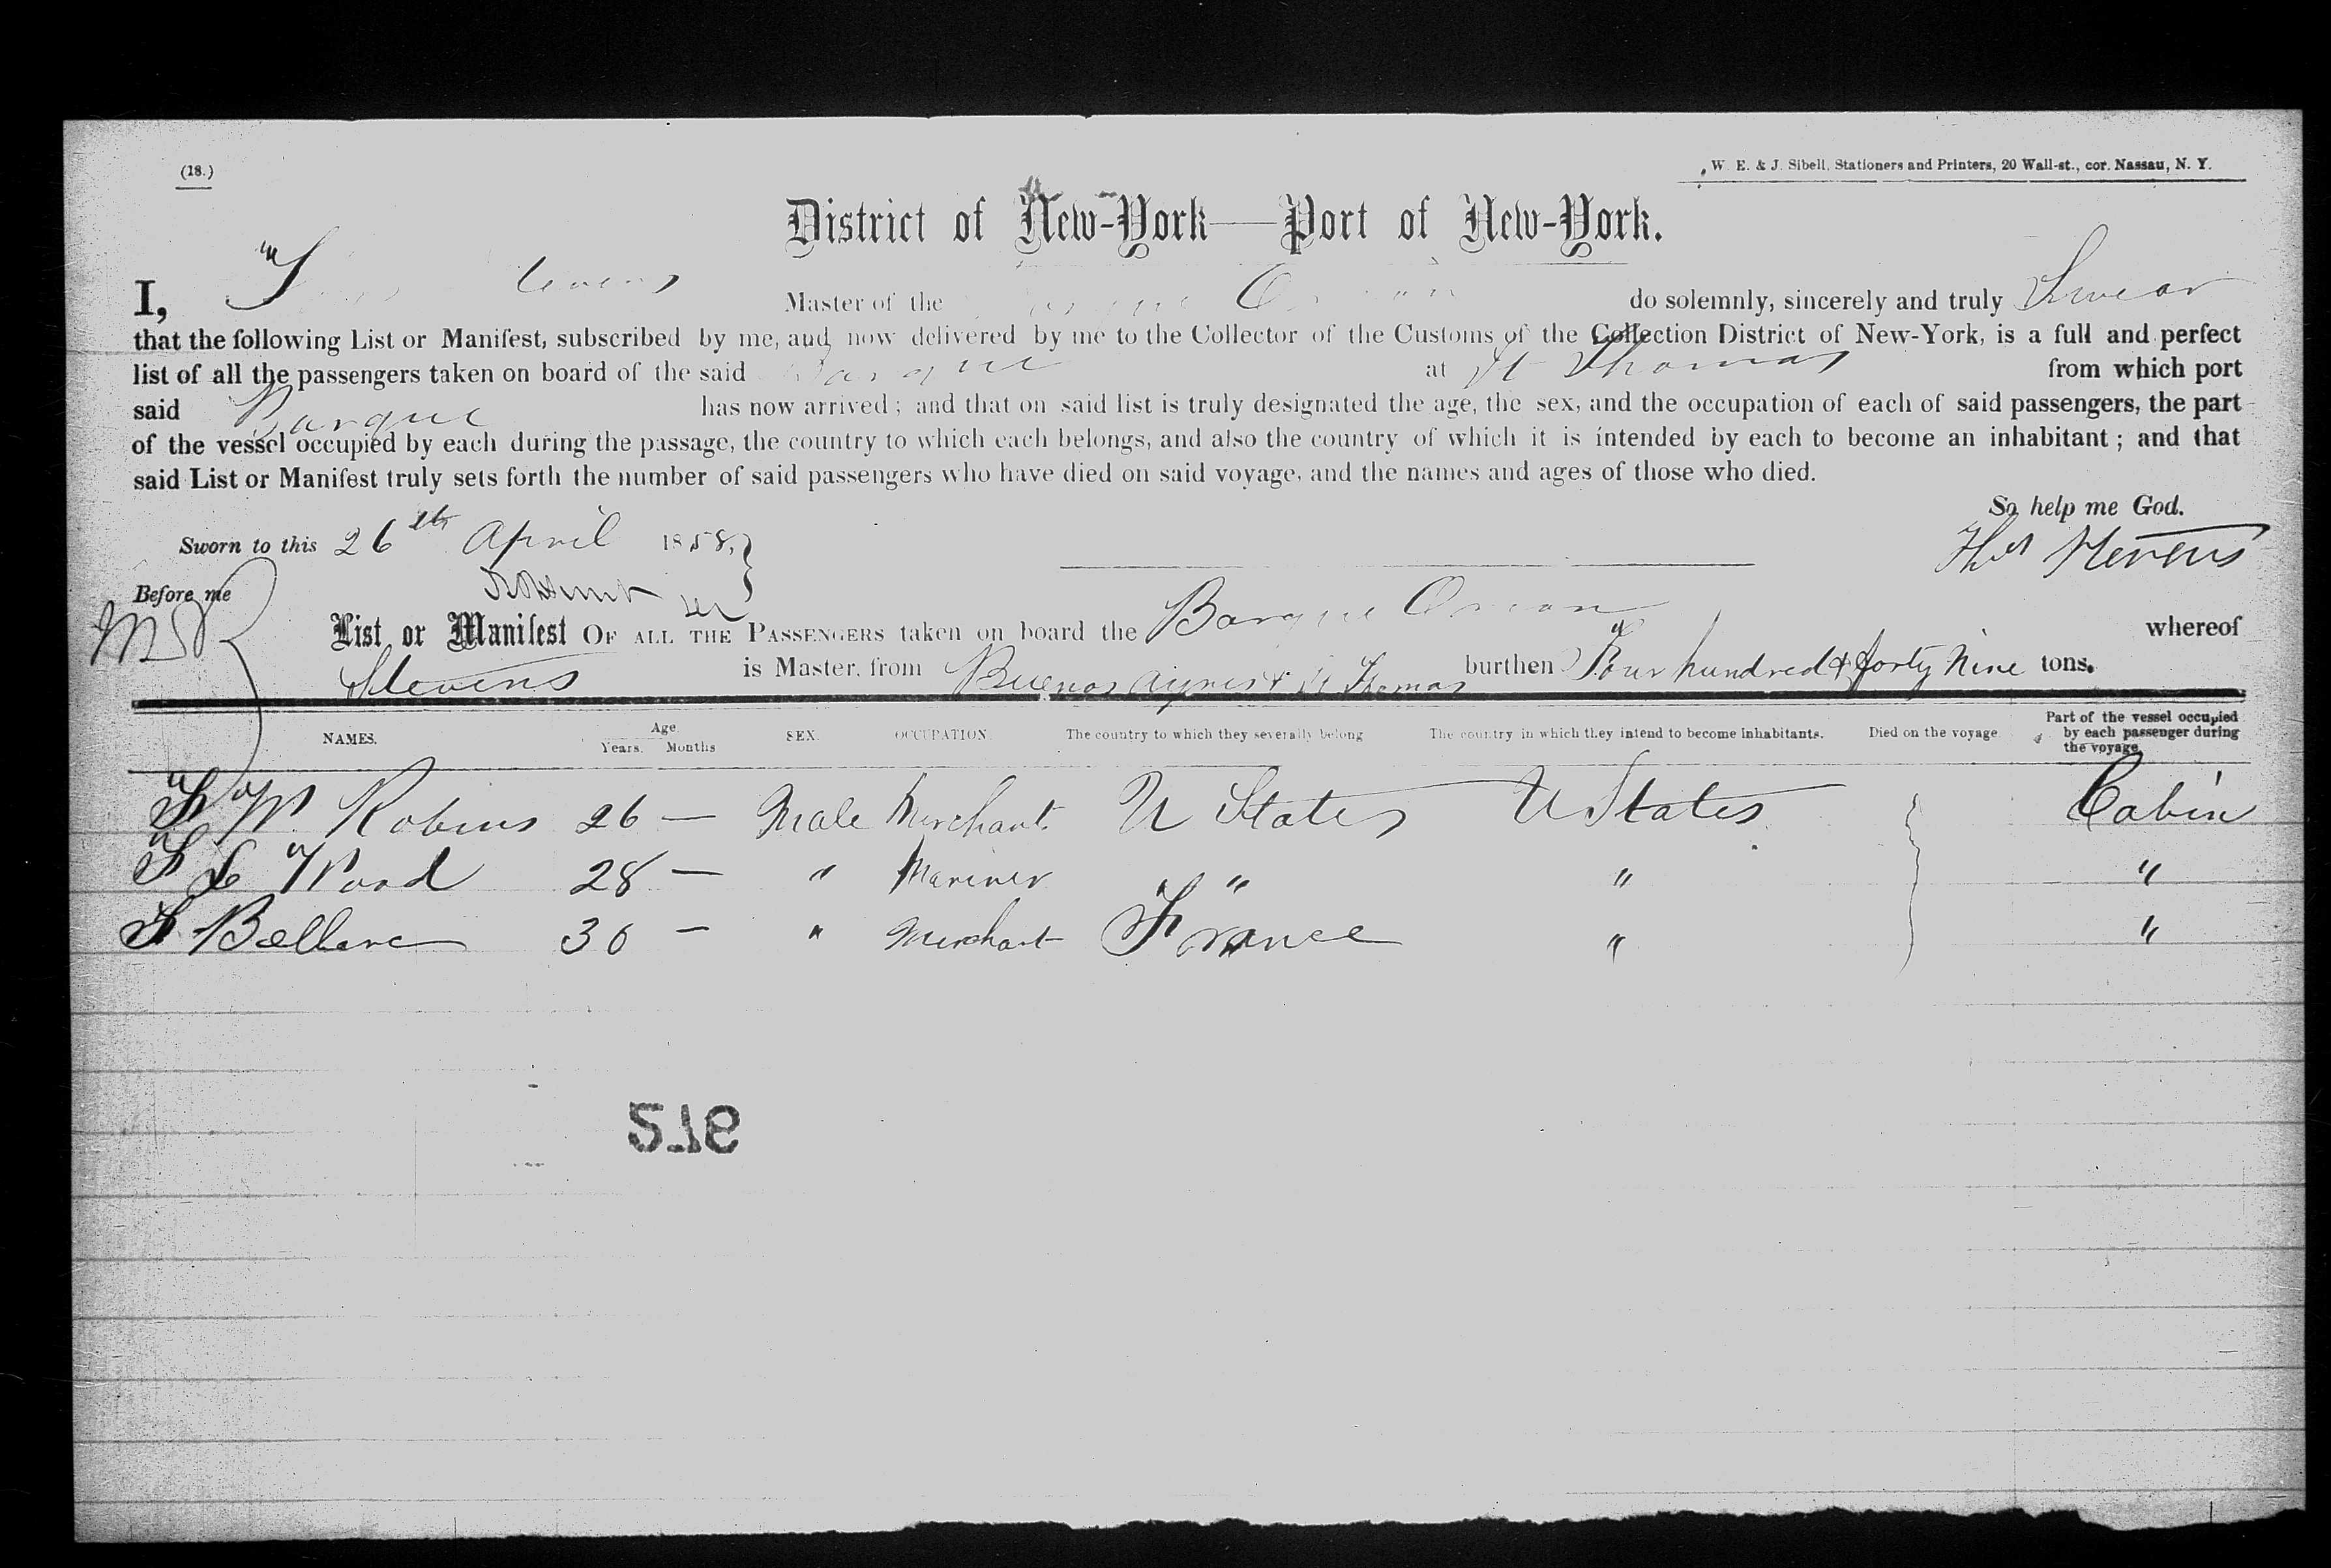 (18.)
W. E. & J. Sibell, Stationers and Printers, 20 Wall-st., cor. Nassau, N. Y.
District of New-York—Port of New-York.
I, Master of the do solemnly, sincerely and truly Swear
that the following List or Manifest, subscribed by me, and now delivered by me to the Collector of the Customs of the Collection District of New-York, is a full and perfect
list of all the passengers taken on board of the said Barque at St Thomas from which port
said Barque has now arrived; and that on said list is truly designated the age, the sex, and the occupation of each of said passengers, the part
of the vessel occupied by each during the passage, the country to which each belongs, and also the country of which it is intended by each to become an inhabitant; and that
said List or Manifest truly sets forth the number of said passengers who have died on said voyage, and the names and ages of those who died.
So help me God.
Sworn to this 26th April 1858, Thos Stevens
Before me
List or Manifest OF ALL THE PASSENGERS taken on board the Barque Orion whereof
Stevens is Master, from Buenos Ayres & St Thomas burthen Four hundred & forty Nine tons.
NAMES. Age Years. Months SEX. OCCUPATION. The country to which they severally belong The country in which they intend to become inhabitants. Died on the voyage Part of the vessel occupied by each passenger during the voyage
W. Robins 26 — Male Merchant. U States U States Cabin
Ward 28 — " Mariner " " "
30 — " Merchant France " "
916